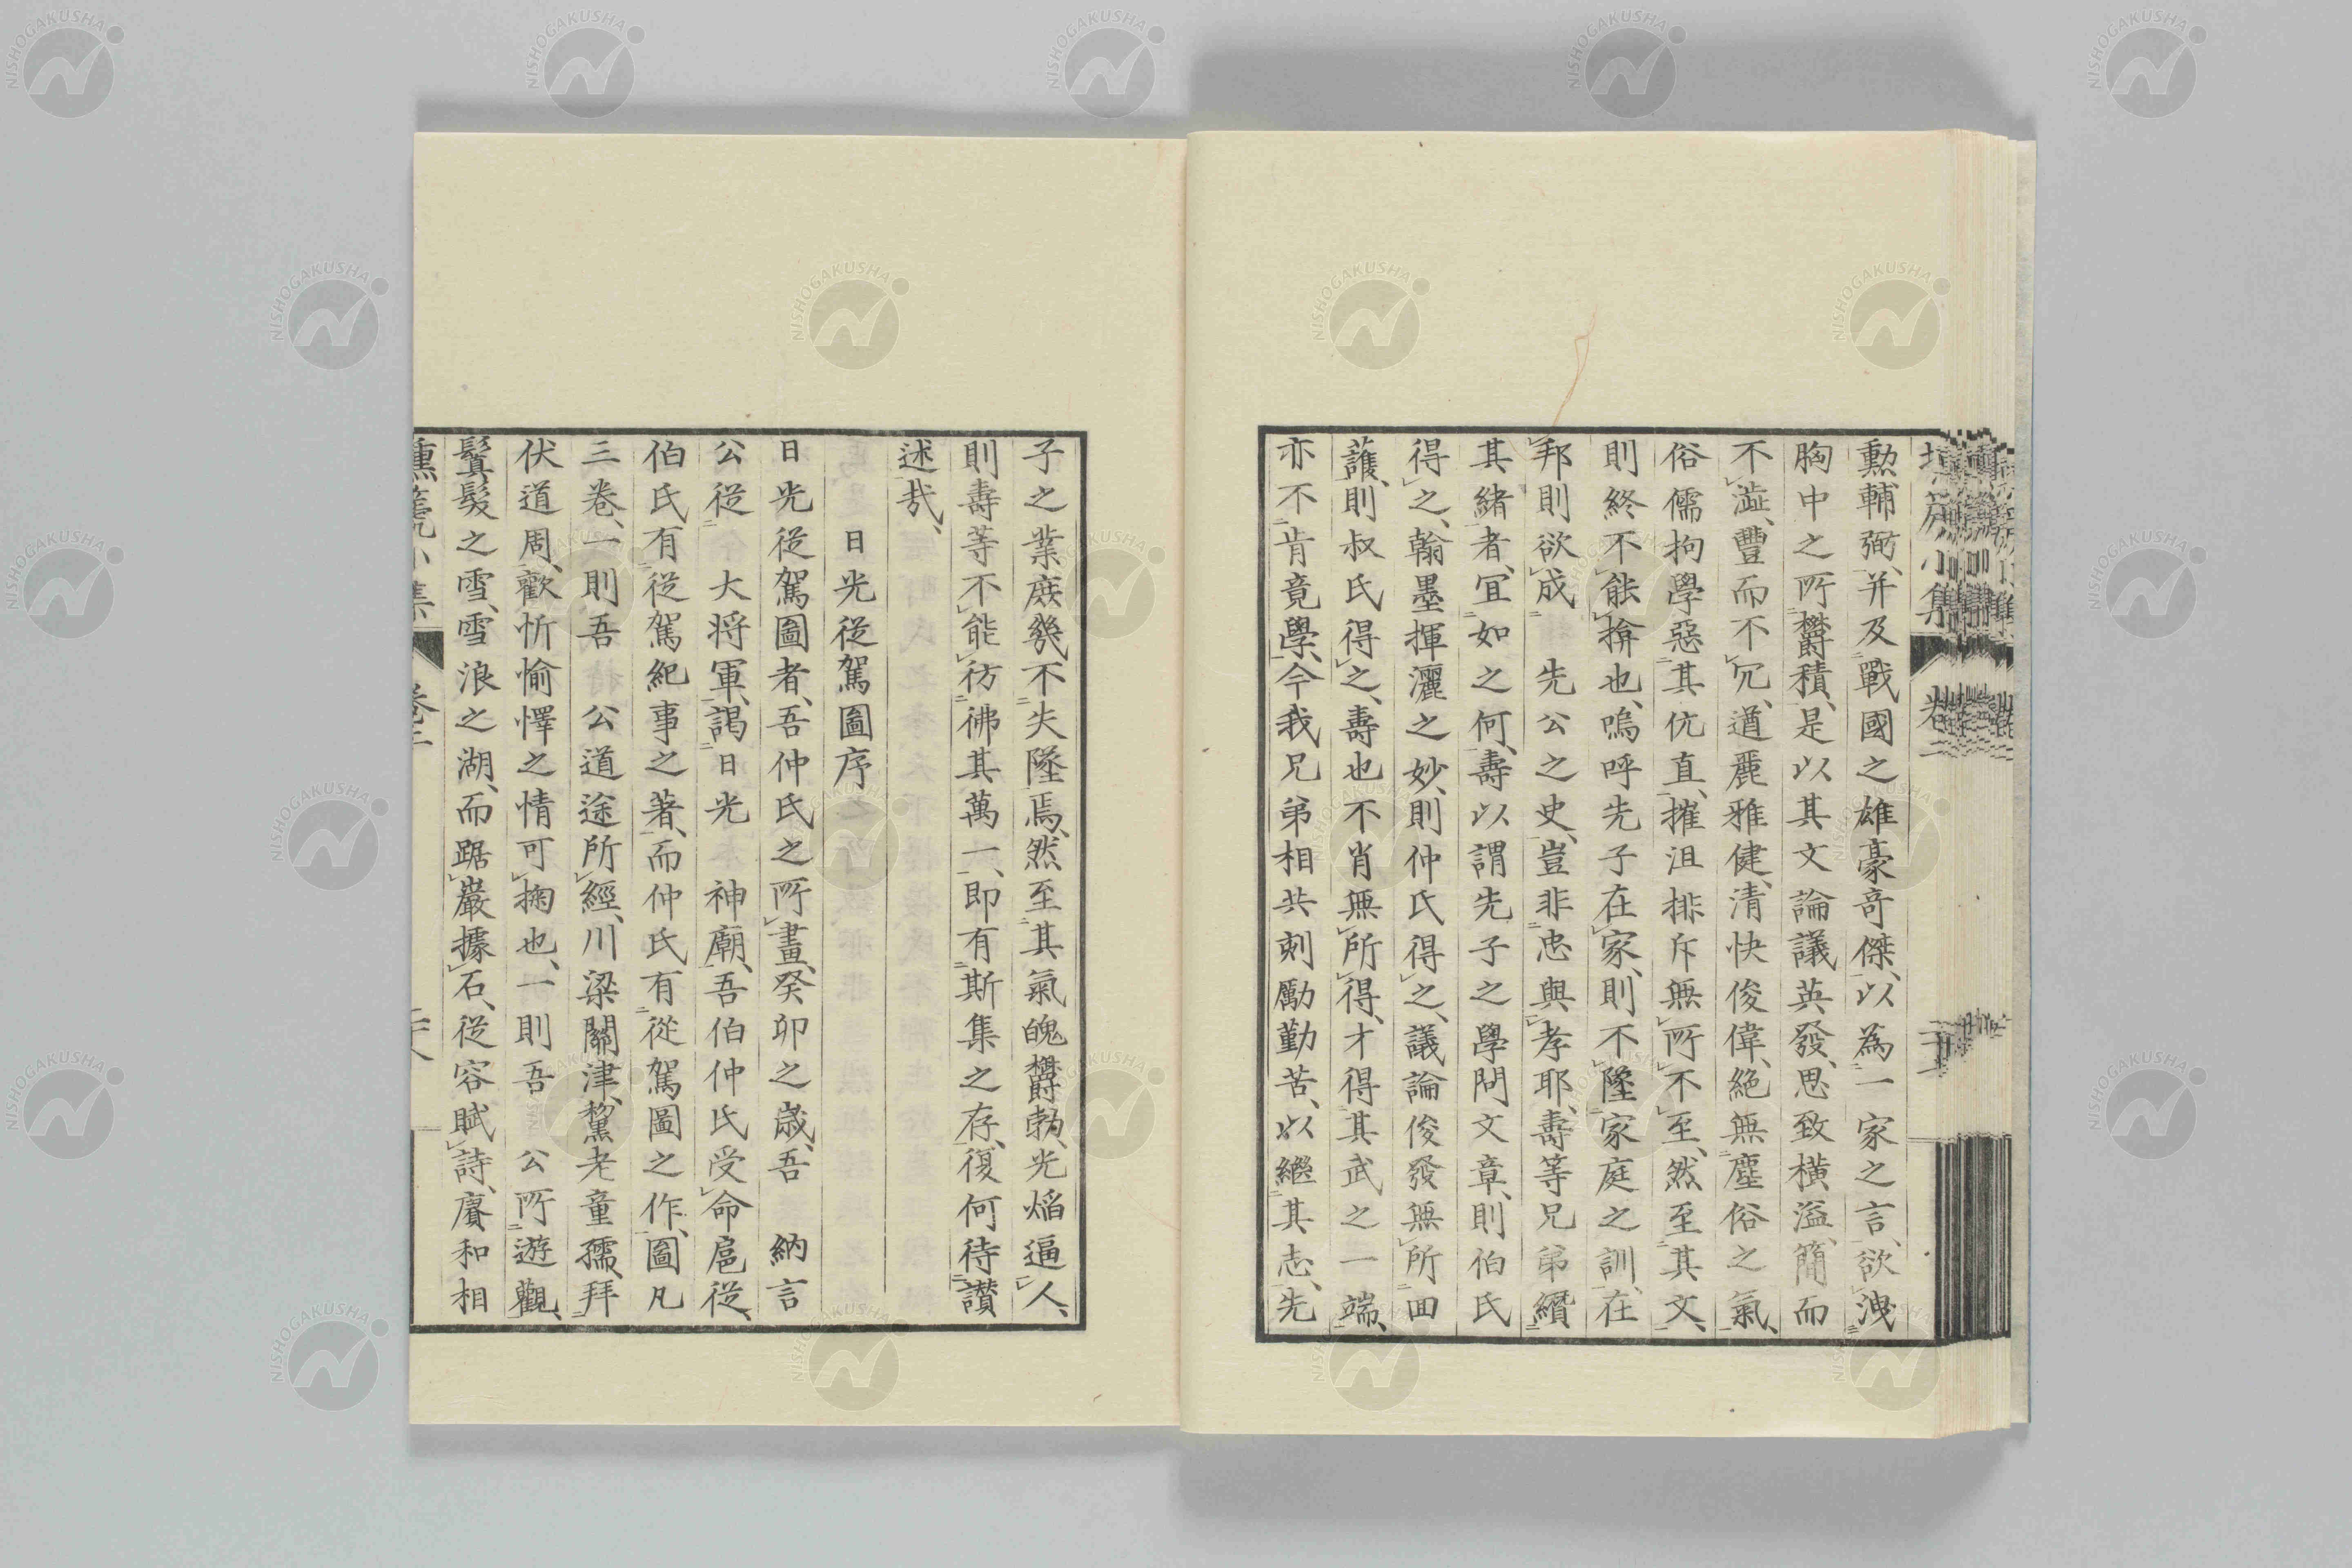 勲、輔弼、并及戰國之雄豪奇傑、以為一家之言、欲洩
胸中之所欝積、是以其文論議英發、思致橫溢、簡而
不澁、豐而不冗、遒麗雅健、清快俊偉、絕無塵俗之氣、
俗儒拘學惡其伉直、摧沮排斥無所不至、然至其文、
則終不能揜也、嗚呼先子在家、則不墜家庭之訓、在
邦則欲成 先公之史、豈非忠與孝耶、壽等兄弟纘
其緒者、宜如之何、壽以謂先子之學問文章、則伯氏
得之、翰墨揮灑之妙、則仲氏得之、議論俊發無所回
護、則叔氏得之、壽也不肖無所得、才得其武之一端、
亦不肯竟學、今我兄弟相共刺勵勤苦、以繼其志、先
子之業庶幾不失墜焉、然至其氣魄欝勃、光焰逼人、
則壽等不能彷彿其萬一、即有斯集之存、復何待讃
述哉、
日光從駕圖序
日光從駕圖者、吾仲氏之所畫、癸卯之歲、吾 納言
公從 大将軍、謁日光 神廟、吾伯仲氏受命扈從、
伯氏有從駕紀事之著、而仲氏有從駕圖之作、圖凡
三卷、一則吾 公道途所經、川梁關津、黧老童孺、拜
伏道周、歡忻愉懌之情可掬也、一則吾 公所遊觀、
鬒髮之雪、雪浪之湖、而踞巖據石、從容賦詩、賡和相